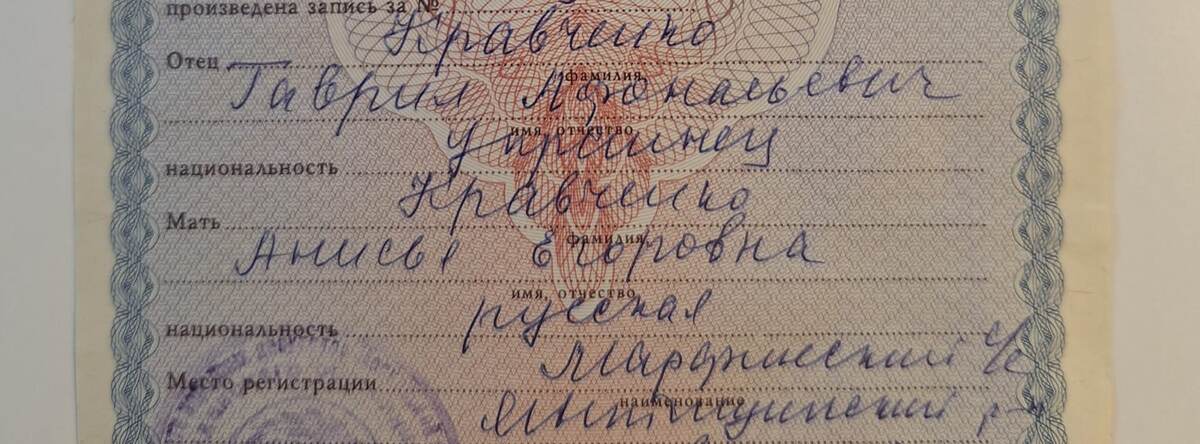 произведена запись за №
Кравченко
Отец
фамилия
Гаврил Афонасьевич
имя, отчество
Украинец
национальность
Кравченко
Мать
фамилия
Анисья Егоровна
имя, отчество
русская
национальность
Марфинский с/с
Место регистрации
наименование
Мытищинский р-н